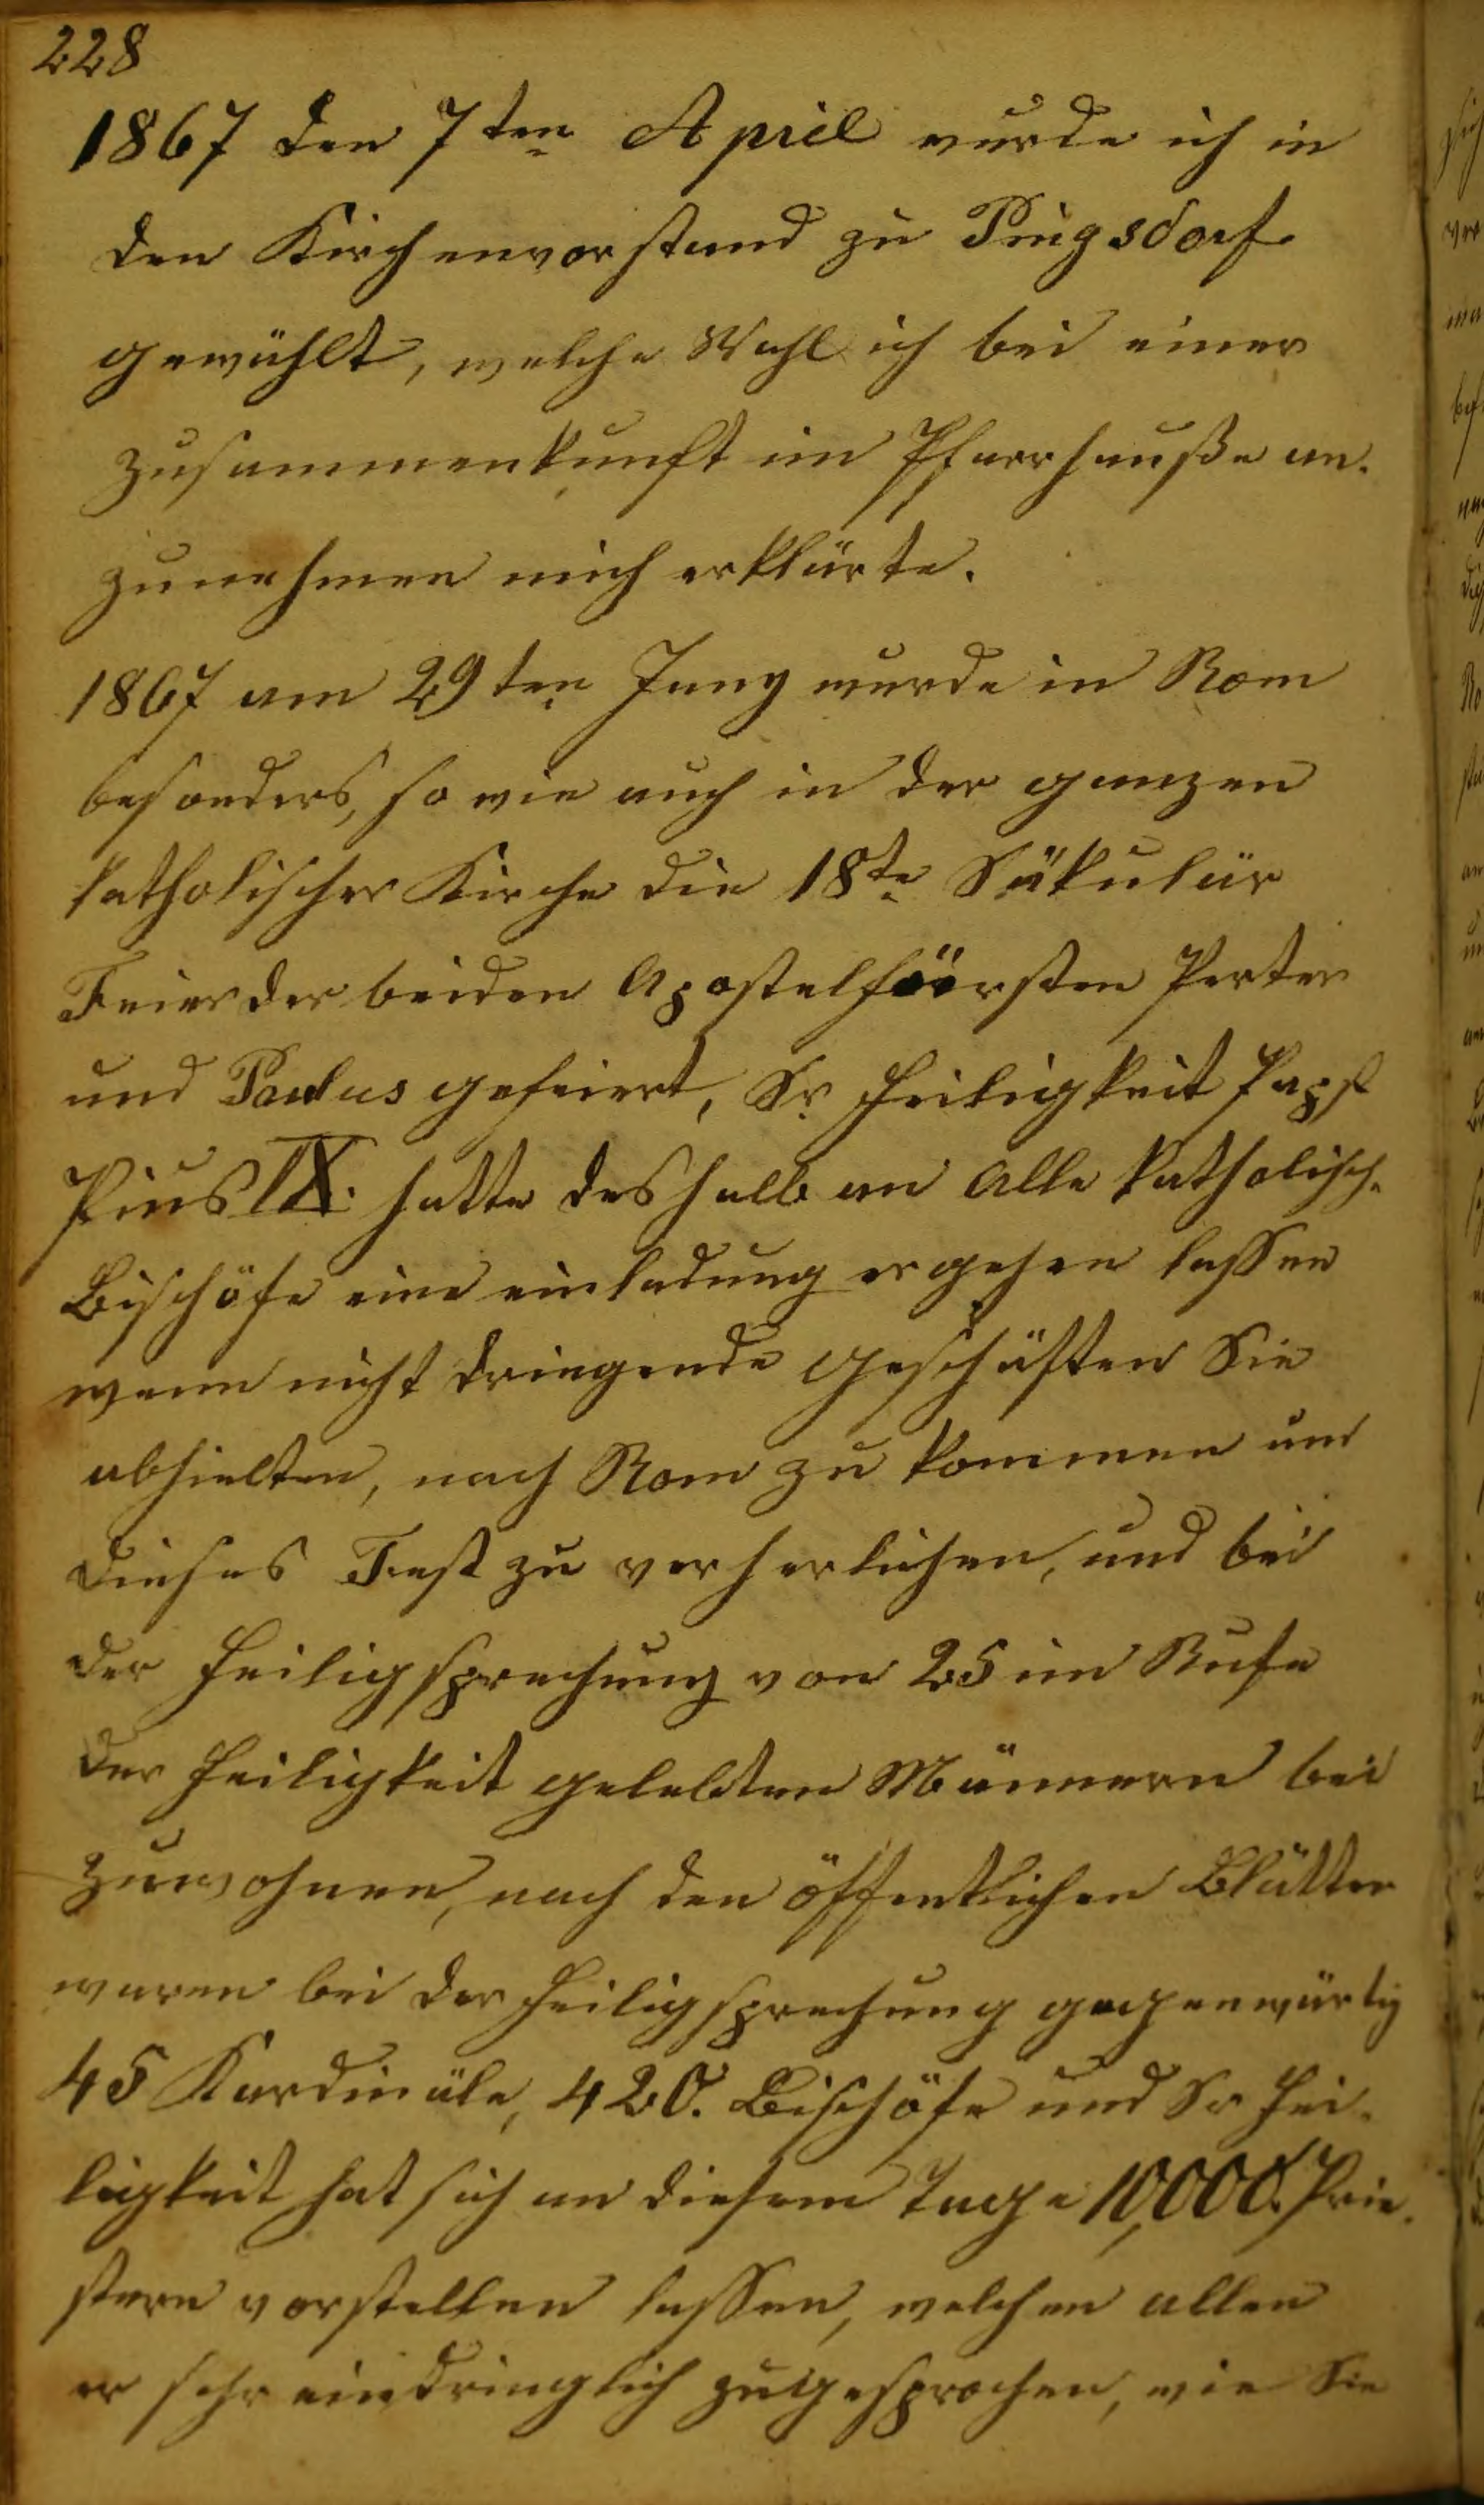 228
1867 den 7ten April wurde ich in
den Kirchenvorstand zu Pingsdorf
gewählt, welche Wahl ich bei einer
zusammenkunft im Pfarrhauße an-
zunehmen mich erklärte.
1867 am 29ten Juny wurde in Rom
besonders, so wie auch in der ganzen
katholischer Kirche die 18te Säkulär
Feier der beiden Apostelföorsten Perter
und Paulus gefeiert, Sr. Heiligkeit Papst
Pius IX. hatte deshalb an Alle katholisch.
Bischöfe eine einladung ergehen lassen
wenn nicht dringende geschäften Sie
abhielten, nach Rom zu kommen um
dieses Fest zu verherlichen, und bei
der Heiligsprechung von 25 im Rufe
der Heiligkeit gelebten Männern bei
zuwohnen, nach den öffentlichen Blätter
waren bei der Heiligsprechung gegenwärtig
45 Kardinäle, 420. Bischöfe und Sr Hei-
ligkeit hat sich an diesem Tage 10,000. Prie-
stern vorstellen lassen, welchen allen
er sehr eindringlich zugesprochen, wie Sie